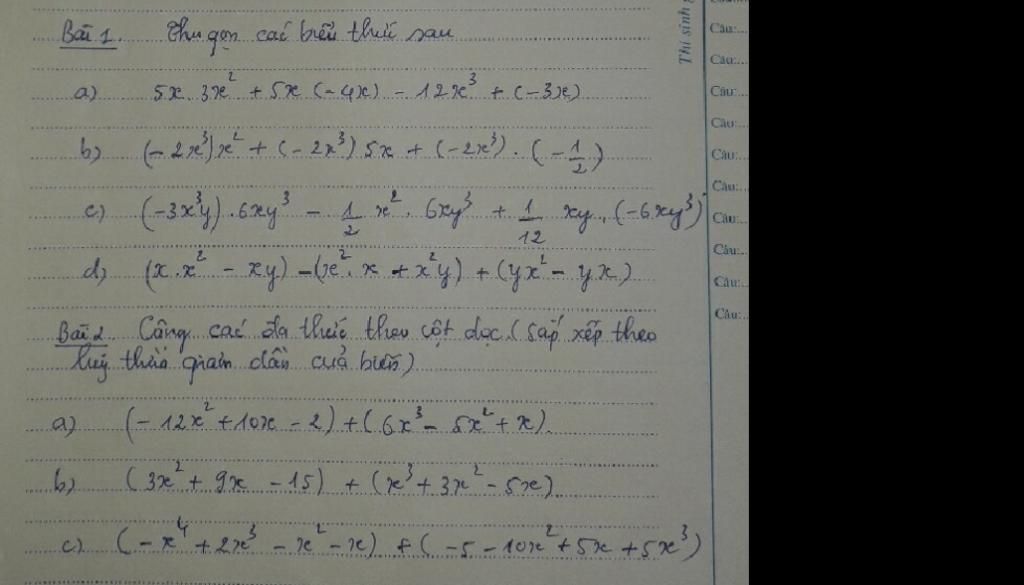 Bài 1. Thu gọn các biểu thức sau
a) 5x.3x² + 5x(-4x) - 12x³ + (-3x)
b) (-2x³)x² + (-2x³)5x + (-2x³).(-1/2)
c) (-3x³y).6xy³ - 1/2 x².6xy³ + 1/12 xy.(-6xy³)
d) (x.x² - xy) - (x².x + x²y) + (yx² - yx)
Bài 2. Cộng các đa thức theo cột dọc (sắp xếp theo
luỹ thừa giảm dần của biến)
a) (-12x² + 10x - 2) + (6x³ - 5x² + x).
b) (3x² + 9x - 15) + (x³ + 3x² - 5x)
c) (-x⁴ + 2x³ - x² - x) + (-5 - 10x² + 5x + 5x³)
Thí sinh
Câu:...
Câu:...
Câu:...
Câu:...
Câu:...
Câu:...
Câu:...
Câu:...
Câu:...
Câu:...